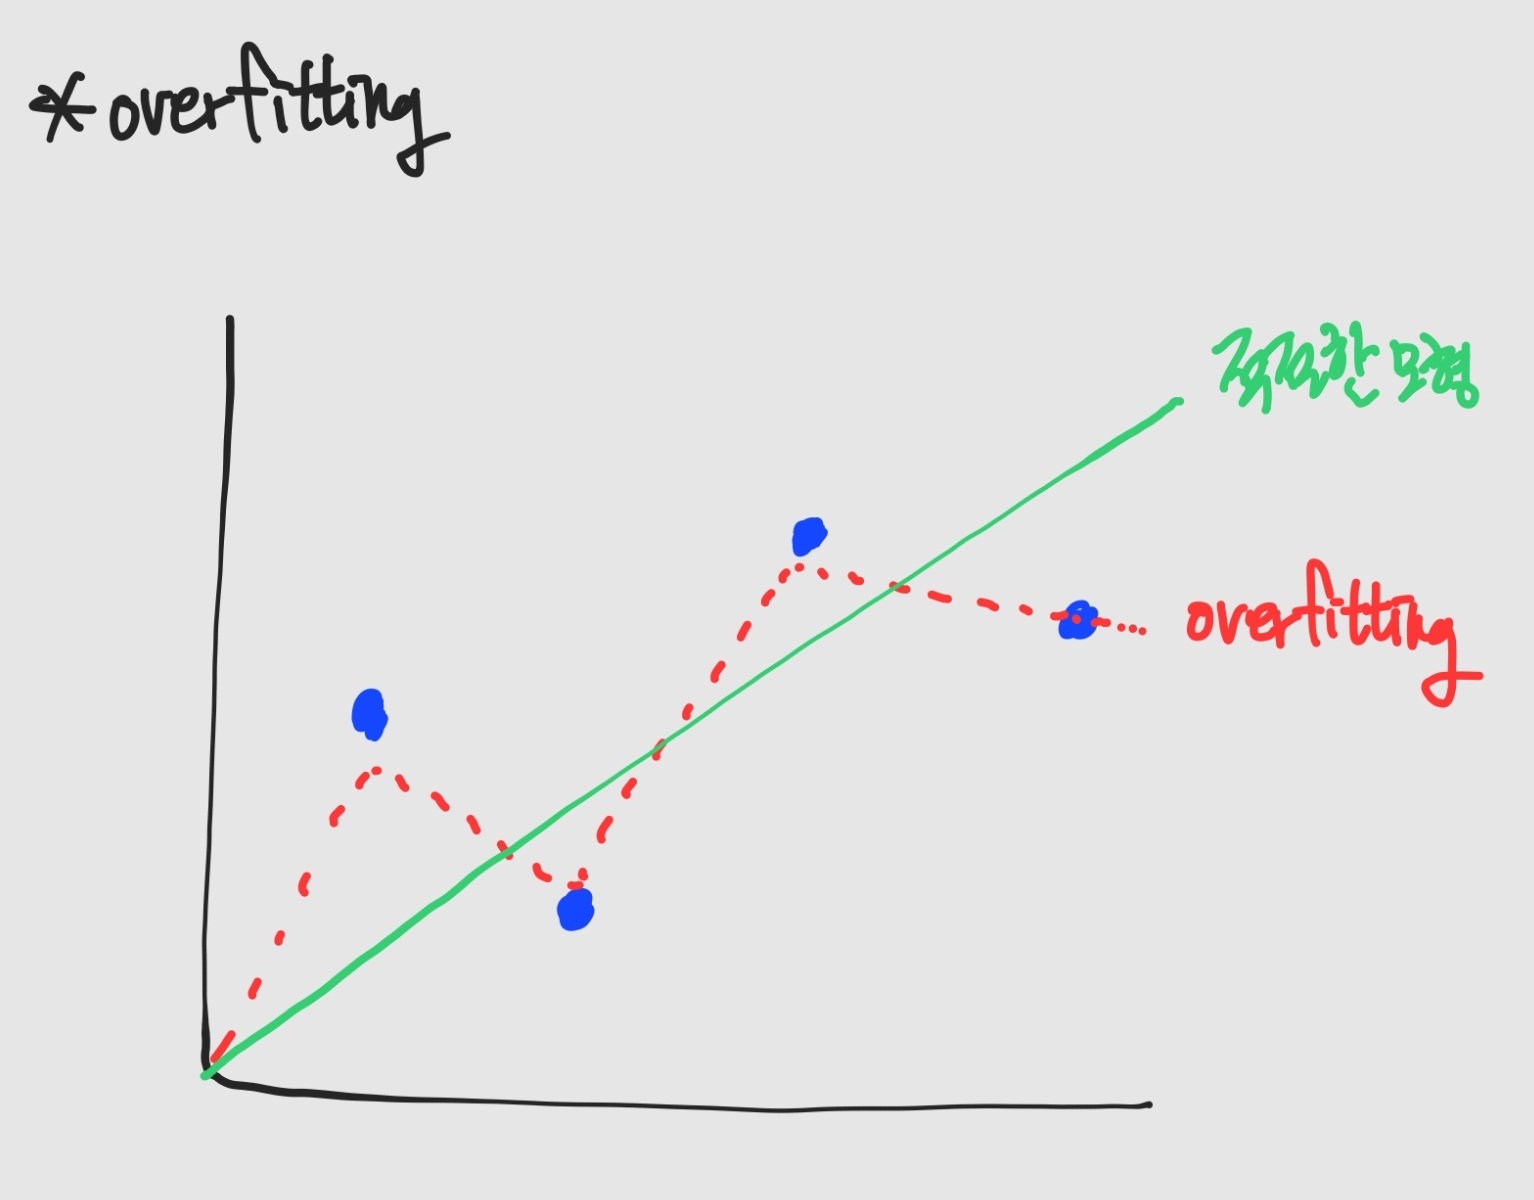 *overfitting
적절한 모형
overfitting